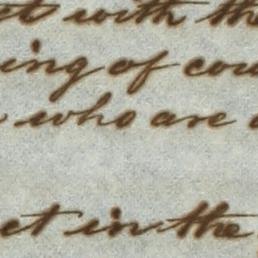 with the
ing of
who are
in the